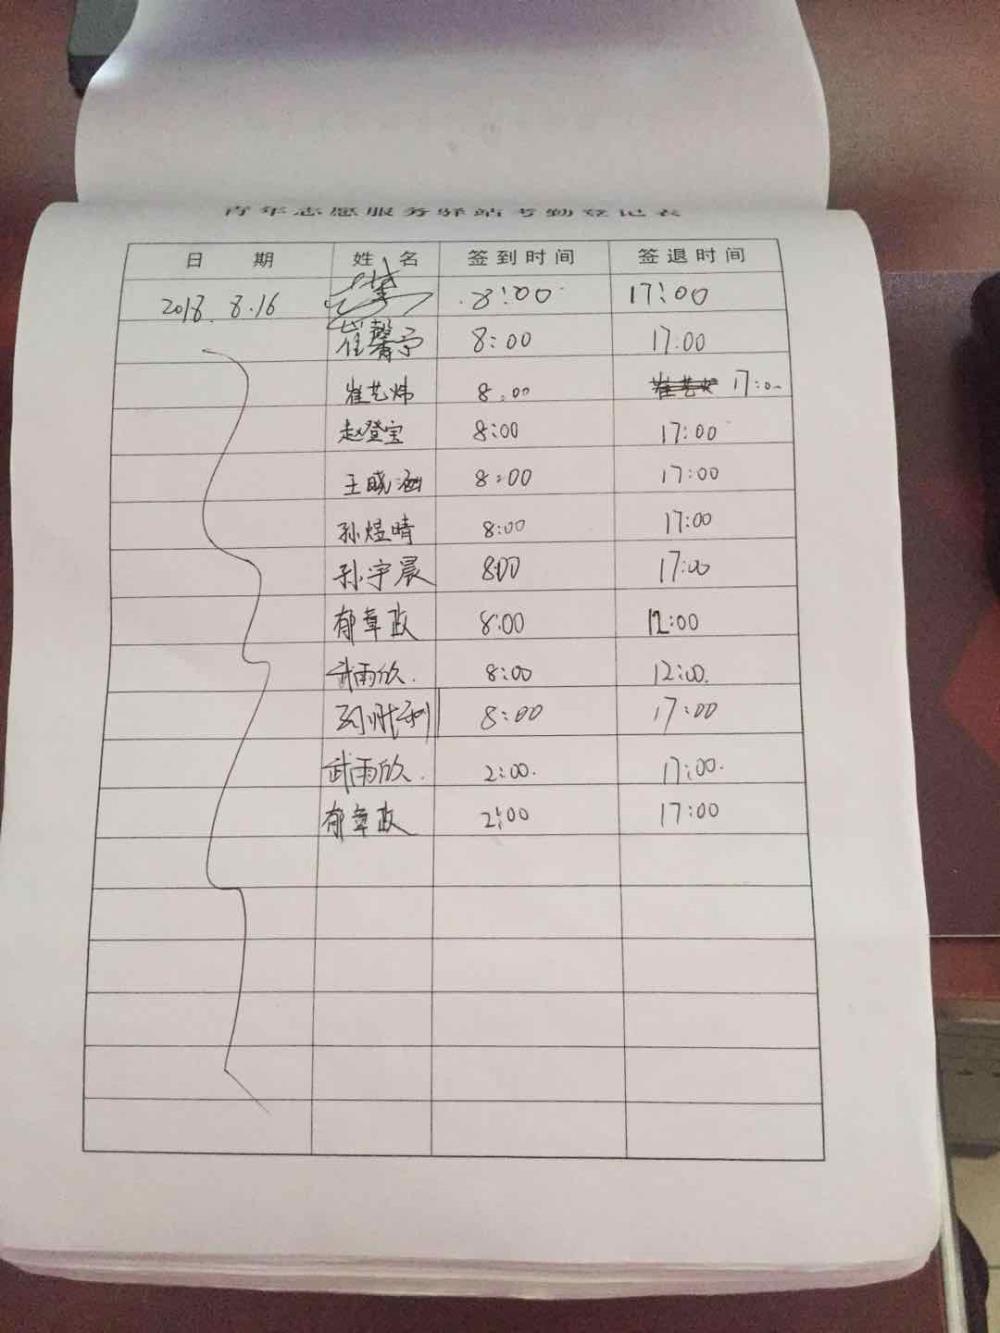 青年志愿服务驿站考勤登记表
日 期 姓 名 签到时间 签退时间
2018. 8.16 8:00 17:00
崔馨予 8:00 17:00
崔艺炜 8:00 17:00
赵登宝 8:00 17:00
王晓涵 8:00 17:00
孙煜晴 8:00 17:00
孙宇晨 8:00 17:00
郁章政 8:00 12:00
武雨欣. 8:00 12:00.
8:00 17:00
武雨欣. 2:00. 17:00.
郁章政 2:00 17:00